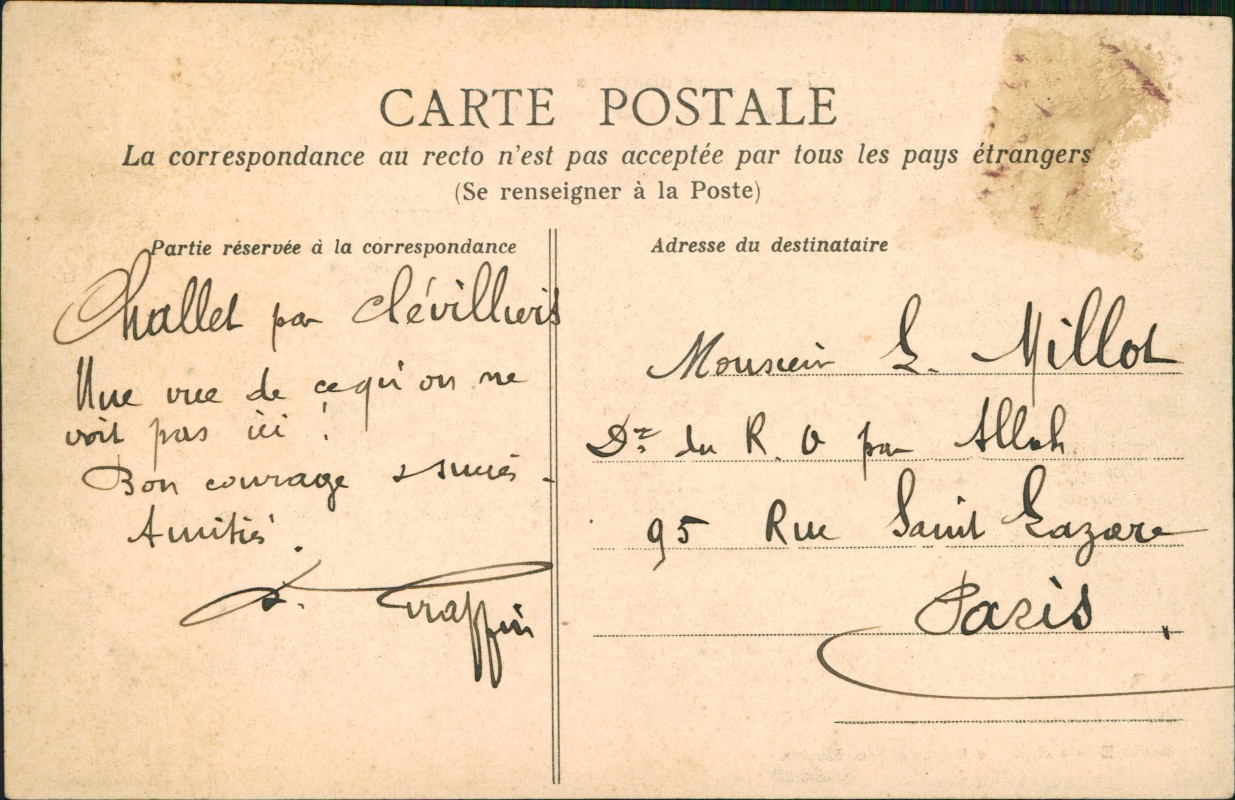 CARTE POSTALE
La correspondance au recto n'est pas acceptée par tous les pays étrangers
(Se renseigner à la Poste)
Partie réservée à la correspondance
Challet par Clévilliers
Une vue de ce qu'on ne
voit pas ici !
Bon courage &
Amitiés.
Adresse du destinataire
Monsieur E. Millot
Dr du R. O par Allah
95 Rue Saint Lazare
Paris.